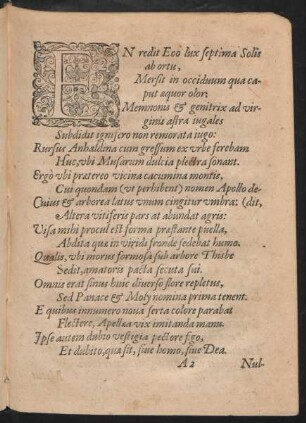 EN redit Eoo lux septima Solis
ab ortu,
Mersit in occiduum qua caput
aquor olor:
Memnonis & genitrix ad virginis
astra iugales
Subdidit ignifero non remorata iugo:
Rursus Anhaldina cum gressum ex vrbe ferebam
Huc, vbi Musarum dulcia plectra sonant.
Ergò vbi prætereo vicina cacumina montis,
Cui quondam (vt perhibent) nomen Apollo de-
Cuius & arborea latus vnum cingitur vmbra: (dit,
Altera vitiferis pars at abundat agris:
Visa mihi procul est forma præstante puella,
Abdita quæ in viridi fronde sedebat humo.
Qualis, vbi morus formosa sub arbore Thisbe
Sedit, amatoris pacta secuta sui.
Omnis erat sinus huic diuerso flore repletus,
Sed Panace & Moly nomina prima tenent.
E quibus innumero noua serta colore parabat
Flectere, Apellæa vix imitanda manu.
Ipse autem dubio vestigia pectore figo,
Et dubito, quæ sit, siue homo, siue Dea.
A2 Nul-